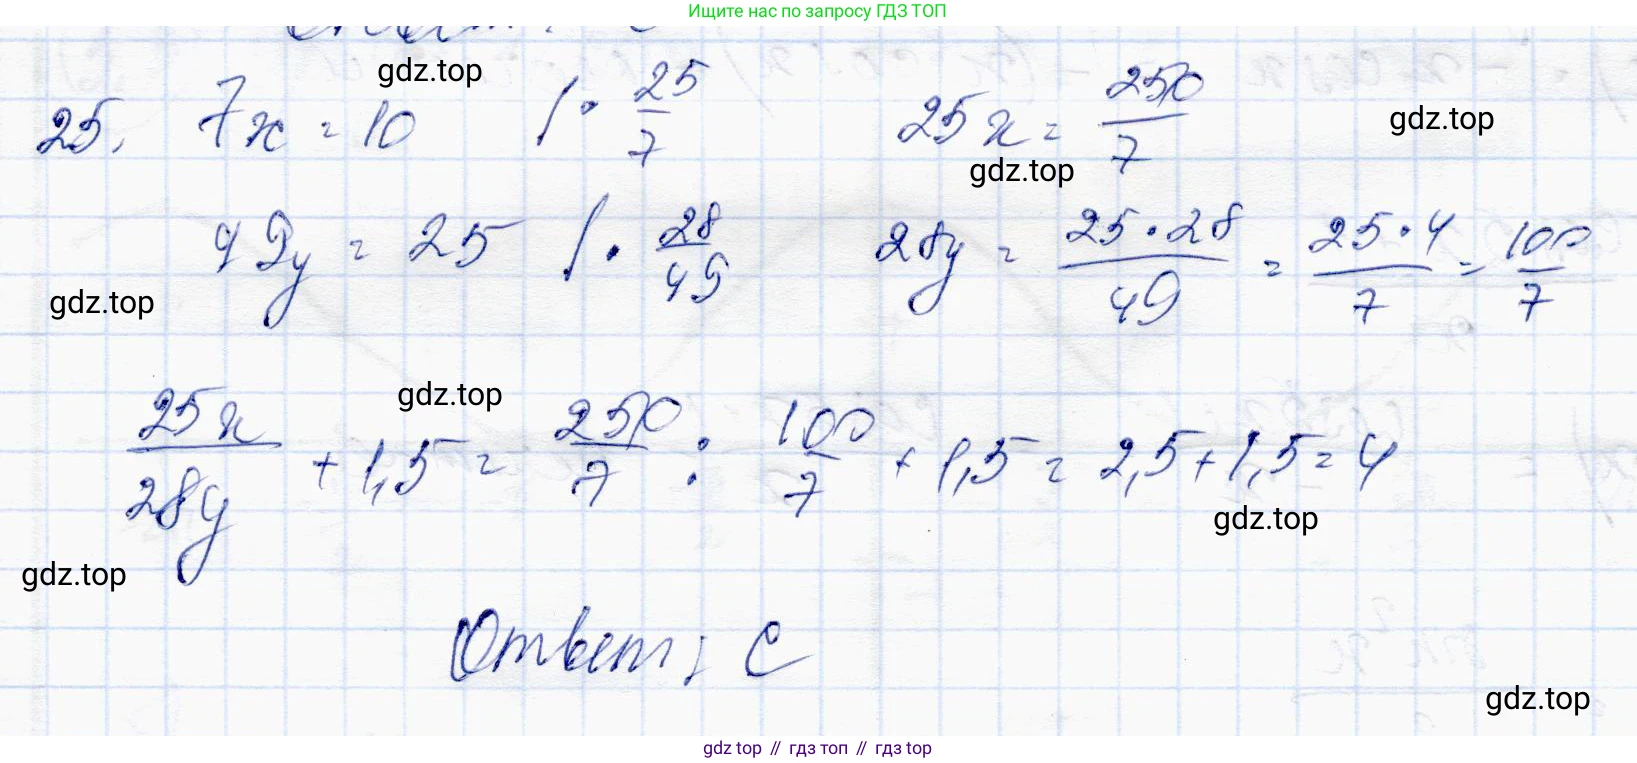 Ищите нас по запросу ГДЗ ТОП
gdz.top
25. 7x = 10 | · 25/7 25x = 250/7
gdz.top
gdz.top
49y = 25 | · 28/49 28y = 25·28/49 = 25·4/7 = 100/7
gdz.top
gdz.top
25x/28y + 1,5 = 250/7 : 100/7 + 1,5 = 2,5 + 1,5 = 4
gdz.top
gdz.top
Ответ: C
gdz.top
gdz top // гдз топ // гдз top